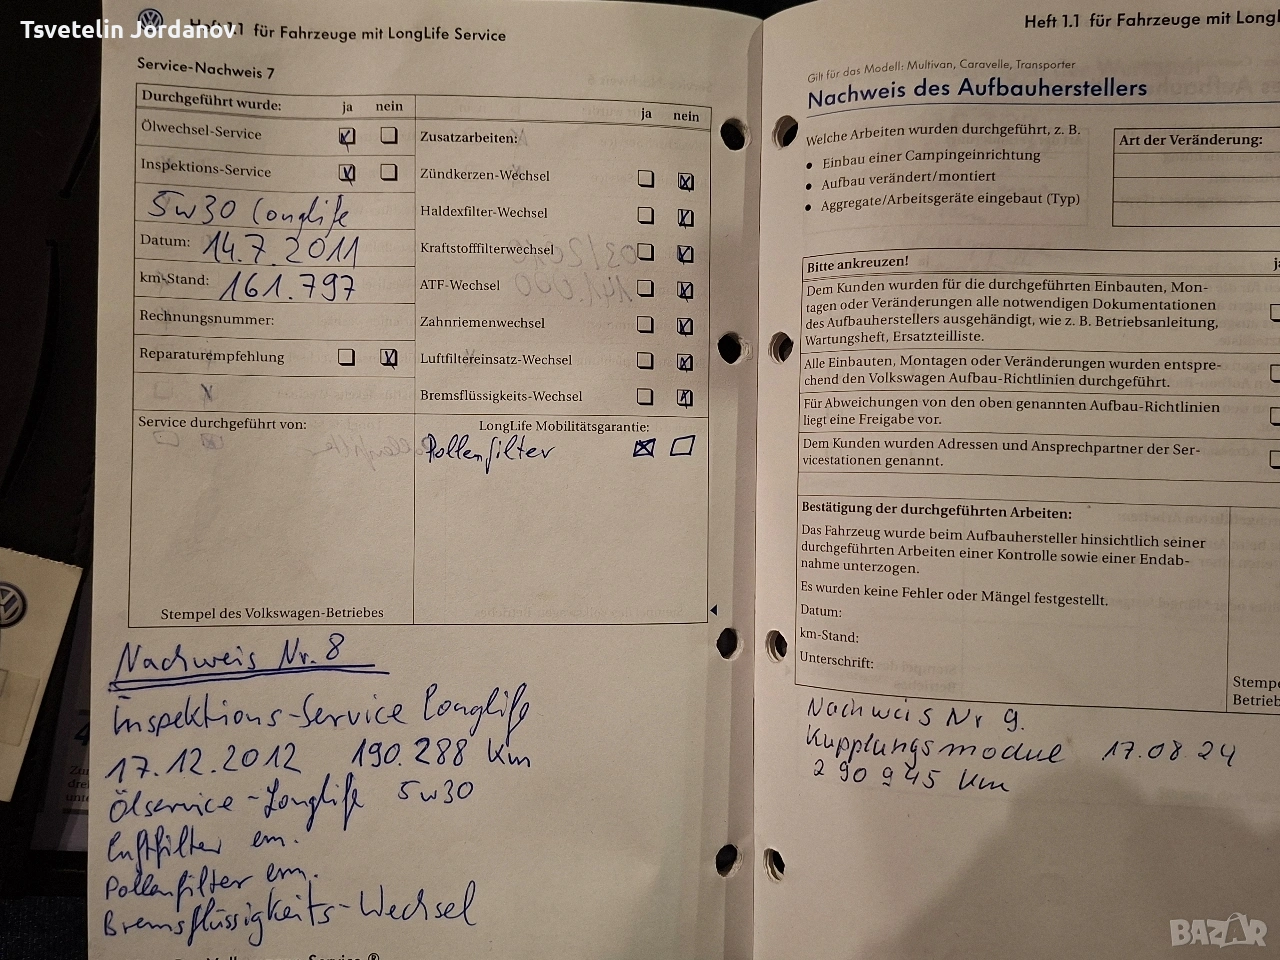 Tsvetelin Jordanov
Heft 1.1 für Fahrzeuge mit LongLife Service
Service-Nachweis 7
Durchgeführt wurde: ja nein
Ölwechsel-Service
Inspektions-Service
5w30 Longlife
Datum: 14.7.2011
km-Stand: 161.797
Rechnungsnummer:
Reparaturempfehlung
Service durchgeführt von:
Stempel des Volkswagen-Betriebes
ja nein
Zusatzarbeiten:
Zündkerzen-Wechsel
Haldexfilter-Wechsel
Kraftstofffilterwechsel
ATF-Wechsel
Zahnriemenwechsel
Luftfiltereinsatz-Wechsel
Bremsflüssigkeits-Wechsel
LongLife Mobilitätsgarantie:
Pollenfilter
Nachweis Nr. 8
Inspektions-Service Longlife
17.12.2012 190.288 Km
Ölservice-Longlife 5w30
Luftfilter ern.
Pollenfilter ern.
Bremsflüssigkeits-Wechsel
Heft 1.1 für Fahrzeuge mit
Gilt für das Modell: Multivan, Caravelle, Transporter
Nachweis des Aufbauherstellers
Welche Arbeiten wurden durchgeführt, z. B.
• Einbau einer Campingeinrichtung
• Aufbau verändert/montiert
• Aggregate/Arbeitsgeräte eingebaut (Typ)
Art der Veränderung:
Bitte ankreuzen!
Dem Kunden wurden für die durchgeführten Einbauten, Mon-
tagen oder Veränderungen alle notwendigen Dokumentationen
des Aufbauherstellers ausgehändigt, wie z. B. Betriebsanleitung,
Wartungsheft, Ersatzteilliste.
Alle Einbauten, Montagen oder Veränderungen wurden entspre-
chend den Volkswagen Aufbau-Richtlinien durchgeführt.
Für Abweichungen von den oben genannten Aufbau-Richtlinien
liegt eine Freigabe vor.
Dem Kunden wurden Adressen und Ansprechpartner der Ser-
vicestationen genannt.
Bestätigung der durchgeführten Arbeiten:
Das Fahrzeug wurde beim Aufbauhersteller hinsichtlich seiner
durchgeführten Arbeiten einer Kontrolle sowie einer Endab-
nahme unterzogen.
Es wurden keine Fehler oder Mängel festgestellt.
Datum:
km-Stand:
Unterschrift:
Nachweis Nr 9.
Kupplungsmodul 17.08 24
290945 Km
BAZAR